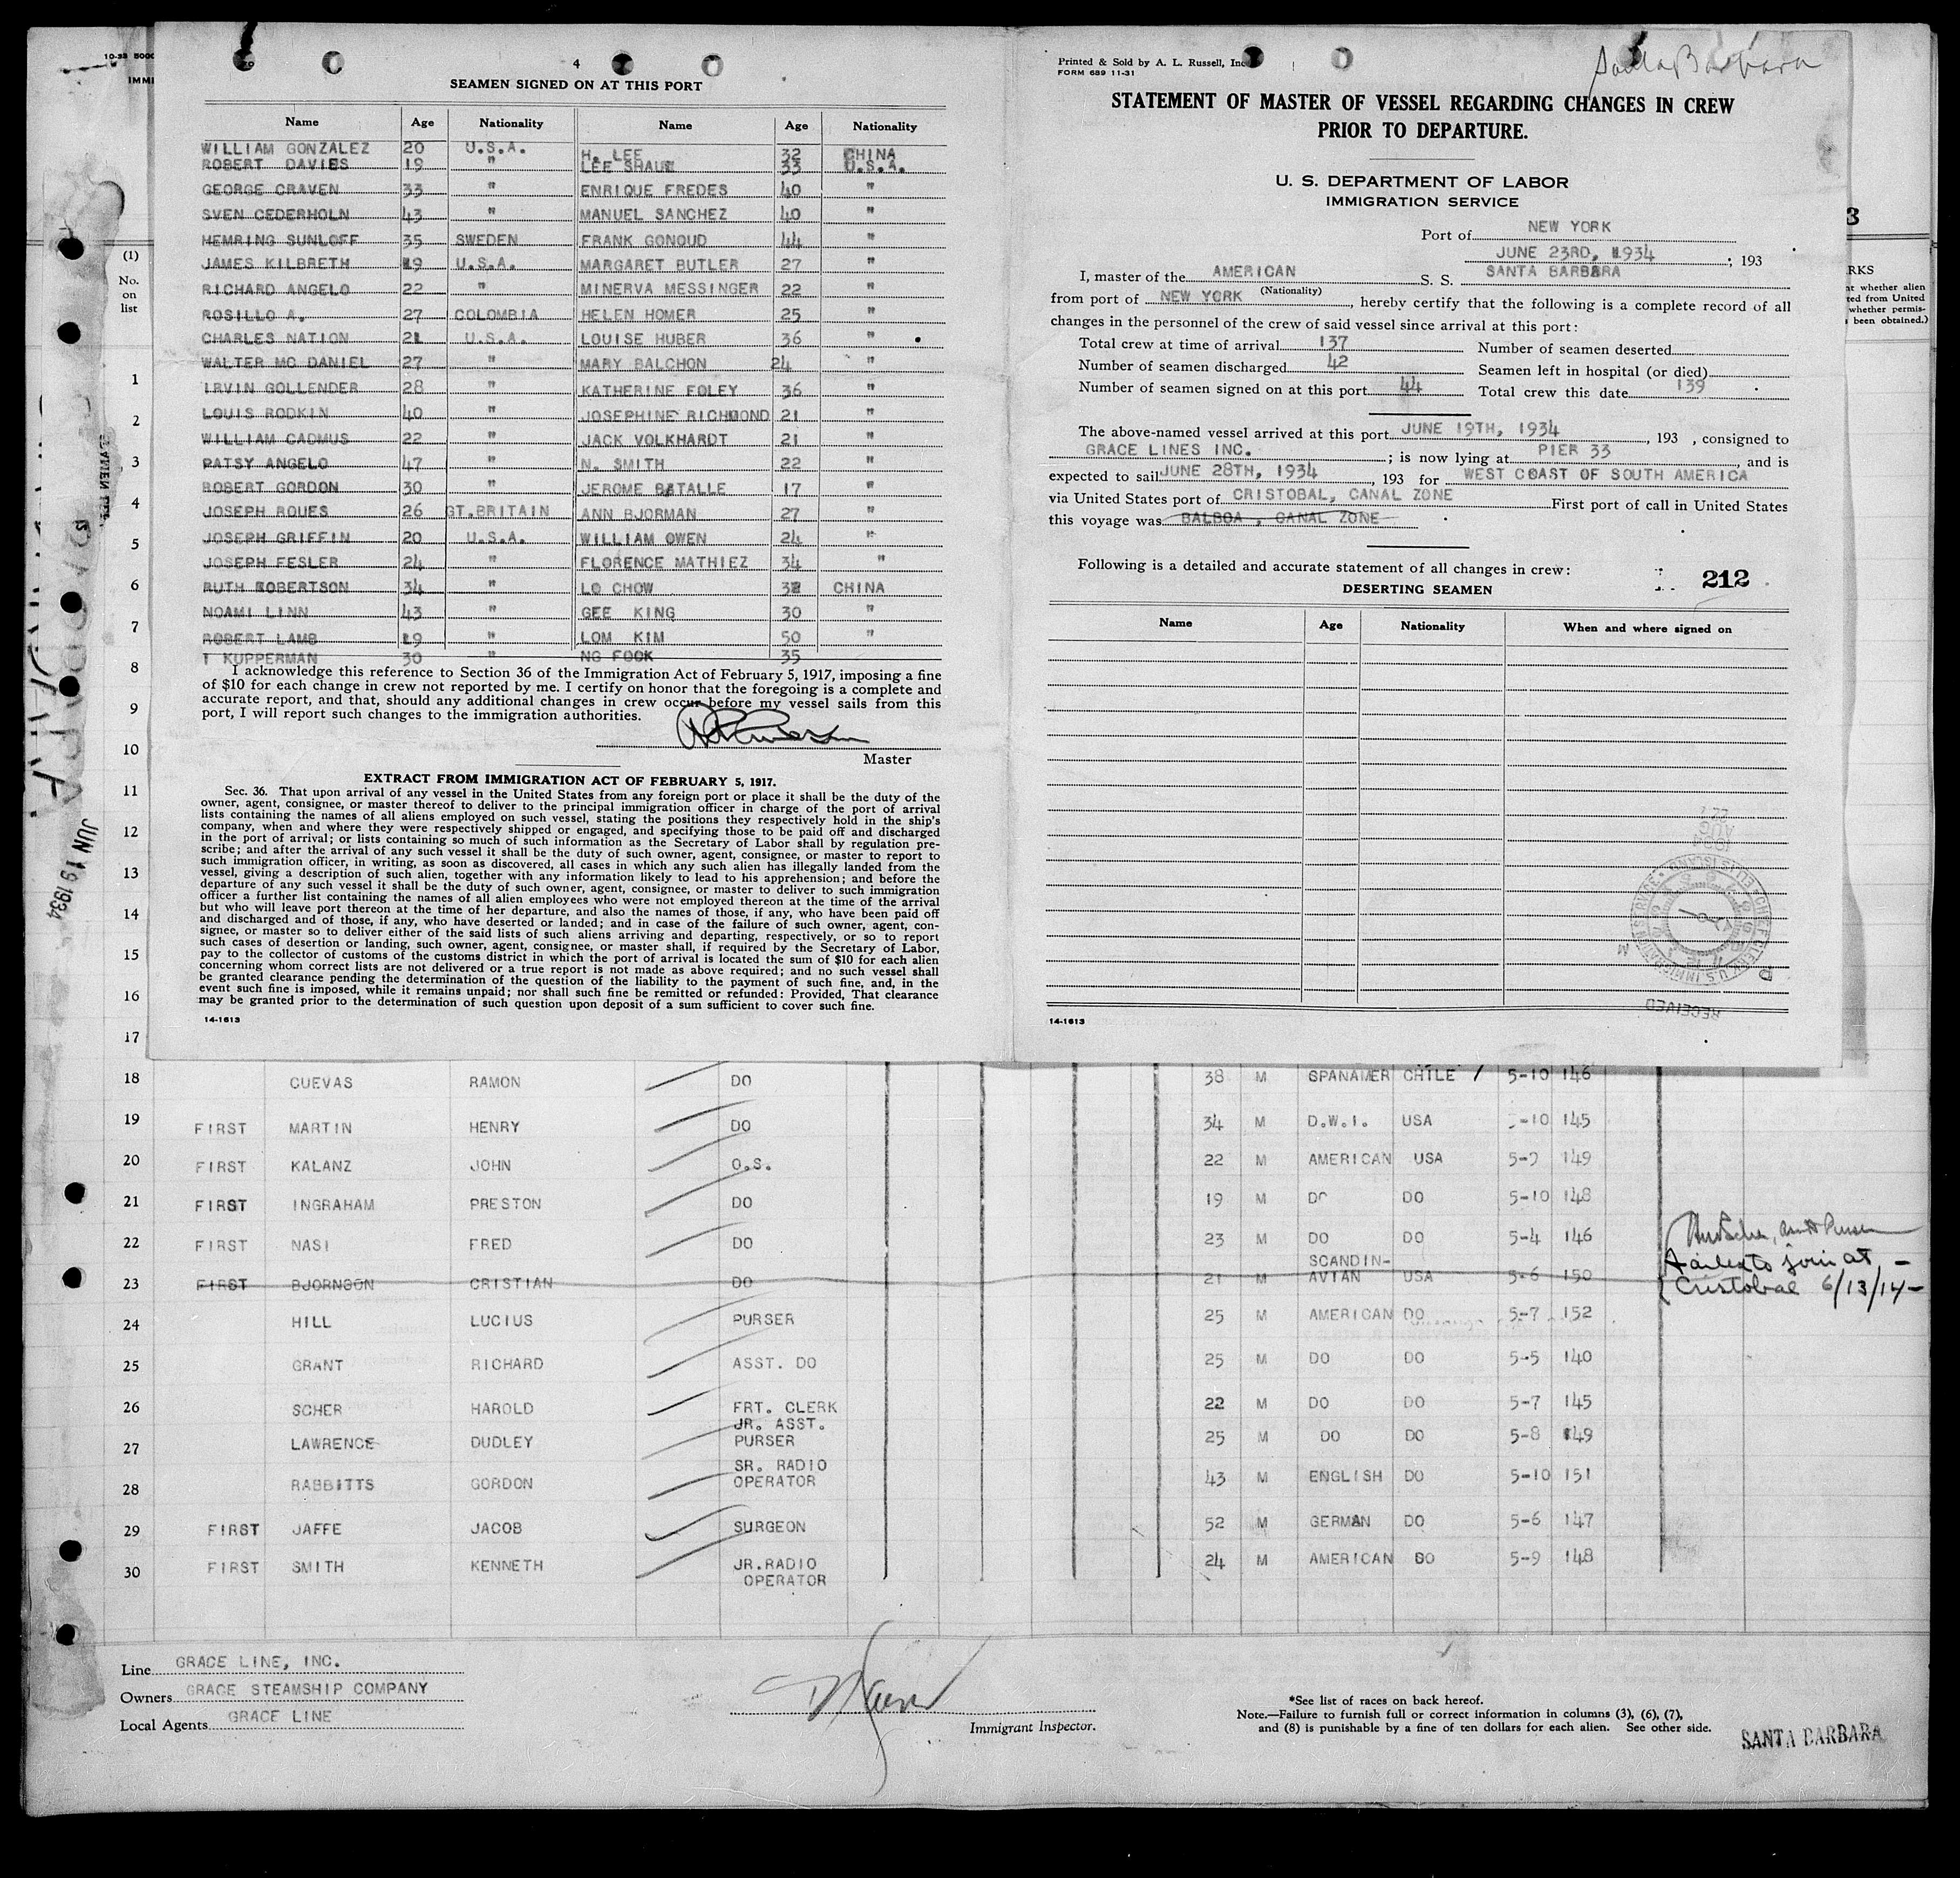 4
SEAMEN SIGNED ON AT THIS PORT
Name Age Nationality Name Age Nationality
WILLIAM GONZALEZ 20 U.S.A. H. LEE 32 CHINA
ROBERT DAVIES 19 " LEE SHAUW 33 U.S.A.
GEORGE CRAVEN 33 " ENRIQUE FREDES 40 "
SVEN CEDERHOLN 43 " MANUEL SANCHEZ 40 "
HEMRING SUNLOFF 35 SWEDEN FRANK GONOUD 44 "
JAMES KILBRETH 19 U.S.A. MARGARET BUTLER 27 "
RICHARD ANGELO 22 " MINERVA MESSINGER 22 "
ROSILLO A. 27 COLOMBIA HELEN HOMER 25 "
CHARLES NATION 21 U.S.A. LOUISE HUBER 36 "
WALTER MC DANIEL 27 " MARY BALCHON 24 "
IRVIN GOLLENDER 28 " KATHERINE FOLEY 36 "
LOUIS RODKIN 40 " JOSEPHINE RICHMOND 21 "
WILLIAM CADMUS 22 " JACK VOLKHARDT 21 "
PATSY ANGELO 47 " N. SMITH 22 "
ROBERT GORDON 30 " JEROME BATALLE 17 "
JOSEPH ROUES 26 GT.BRITAIN ANN BJORMAN 27 "
JOSEPH GRIFFIN 20 U.S.A. WILLIAM OWEN 24 "
JOSEPH FESLER 24 " FLORENCE MATHIEZ 34 "
RUTH ROBERTSON 34 " LO CHOW 32 CHINA
NOAMI LINN 43 " GEE KING 30 "
ROBERT LAMB 19 " LOM KIM 50 "
T KUPPERMAN 30 " NG FOOK 35
I acknowledge this reference to Section 36 of the Immigration Act of February 5, 1917, imposing a fine
of $10 for each change in crew not reported by me. I certify on honor that the foregoing is a complete and
accurate report, and that, should any additional changes in crew occur before my vessel sails from this
port, I will report such changes to the immigration authorities.
Master
EXTRACT FROM IMMIGRATION ACT OF FEBRUARY 5, 1917.
Sec. 36. That upon arrival of any vessel in the United States from any foreign port or place it shall be the duty of the
owner, agent, consignee, or master thereof to deliver to the principal immigration officer in charge of the port of arrival
lists containing the names of all aliens employed on such vessel, stating the positions they respectively hold in the ship's
company, when and where they were respectively shipped or engaged, and specifying those to be paid off and discharged
in the port of arrival; or lists containing so much of such information as the Secretary of Labor shall by regulation pre-
scribe; and after the arrival of any such vessel it shall be the duty of such owner, agent, consignee, or master to report to
such immigration officer, in writing, as soon as discovered, all cases in which any such alien has illegally landed from the
vessel, giving a description of such alien, together with any information likely to lead to his apprehension; and before the
departure of any such vessel it shall be the duty of such owner, agent, consignee, or master to deliver to such immigration
officer a further list containing the names of all alien employees who were not employed thereon at the time of the arrival
but who will leave port thereon at the time of her departure, and also the names of those, if any, who have been paid off
and discharged and of those, if any, who have deserted or landed; and in case of the failure of such owner, agent, con-
signee, or master so to deliver either of the said lists of such aliens arriving and departing, respectively, or so to report
such cases of desertion or landing, such owner, agent, consignee, or master shall, if required by the Secretary of Labor,
pay to the collector of customs of the customs district in which the port of arrival is located the sum of $10 for each alien
concerning whom correct lists are not delivered or a true report is not made as above required; and no such vessel shall
be granted clearance pending the determination of the question of the liability to the payment of such fine, and, in the
event such fine is imposed, while it remains unpaid; nor shall such fine be remitted or refunded: Provided, That clearance
may be granted prior to the determination of such question upon deposit of a sum sufficient to cover such fine.
14-1613
Printed & Sold by A. L. Russell, Inc
FORM 689 11-31
Santa Barbara
STATEMENT OF MASTER OF VESSEL REGARDING CHANGES IN CREW
PRIOR TO DEPARTURE.
U. S. DEPARTMENT OF LABOR
IMMIGRATION SERVICE
Port of NEW YORK
JUNE 23RD, 1934; 193
I, master of the AMERICAN S. S. SANTA BARBARA
(Nationality)
from port of NEW YORK, hereby certify that the following is a complete record of all
changes in the personnel of the crew of said vessel since arrival at this port:
Total crew at time of arrival 137 Number of seamen deserted
Number of seamen discharged 42 Seamen left in hospital (or died)
Number of seamen signed on at this port 44 Total crew this date 139
The above-named vessel arrived at this port JUNE 19TH, 1934, 193 , consigned to
GRACE LINES INC. ; is now lying at PIER 33, and is
expected to sail JUNE 28TH, 1934, 193 for WEST COAST OF SOUTH AMERICA
via United States port of CRISTOBAL, CANAL ZONE First port of call in United States
this voyage was BALBOA , CANAL ZONE
Following is a detailed and accurate statement of all changes in crew:
212
DESERTING SEAMEN
Name Age Nationality When and where signed on
RECEIVED
14-1613
10-33 5000
IMMI
(1)
No.
on
list
3
RKS
whether alien
ted from United
whether permis-
been obtained.)
1
2
3
4
5
6
7
8
9
10
11
12
13
14
15
16
17
JUN 19 1934
18 CUEVAS RAMON DO 38 M SPANAMER CHILE 5-10 146
19 FIRST MARTIN HENRY DO 34 M D.W.I. USA -10 145
20 FIRST KALANZ JOHN O.S. 22 M AMERICAN USA 5-9 149
21 FIRST INGRAHAM PRESTON DO 19 M DO DO 5-10 148
22 FIRST NASI FRED DO 23 M DO DO 5-4 146
23 FIRST BJORNSON CRISTIAN DO 21 M SCANDIN-
AVIAN USA 5-6 150
Failed to join at
Cristobal 6/13/14
24 HILL LUCIUS PURSER 25 M AMERICAN DO 5-7 152
25 GRANT RICHARD ASST. DO 25 M DO DO 5-5 140
26 SCHER HAROLD FRT. CLERK 22 M DO DO 5-7 145
27 LAWRENCE DUDLEY JR. ASST.
PURSER 25 M DO DO 5-8 149
28 RABBITTS GORDON SR. RADIO
OPERATOR 43 M ENGLISH DO 5-10 151
29 FIRST JAFFE JACOB SURGEON 52 M GERMAN DO 5-6 147
30 FIRST SMITH KENNETH JR.RADIO
OPERATOR 24 M AMERICAN DO 5-9 148
Line GRACE LINE, INC.
Owners GRACE STEAMSHIP COMPANY
Local Agents GRACE LINE
Immigrant Inspector.
*See list of races on back hereof.
Note.—Failure to furnish full or correct information in columns (3), (6), (7),
and (8) is punishable by a fine of ten dollars for each alien. See other side.
SANTA BARBARA